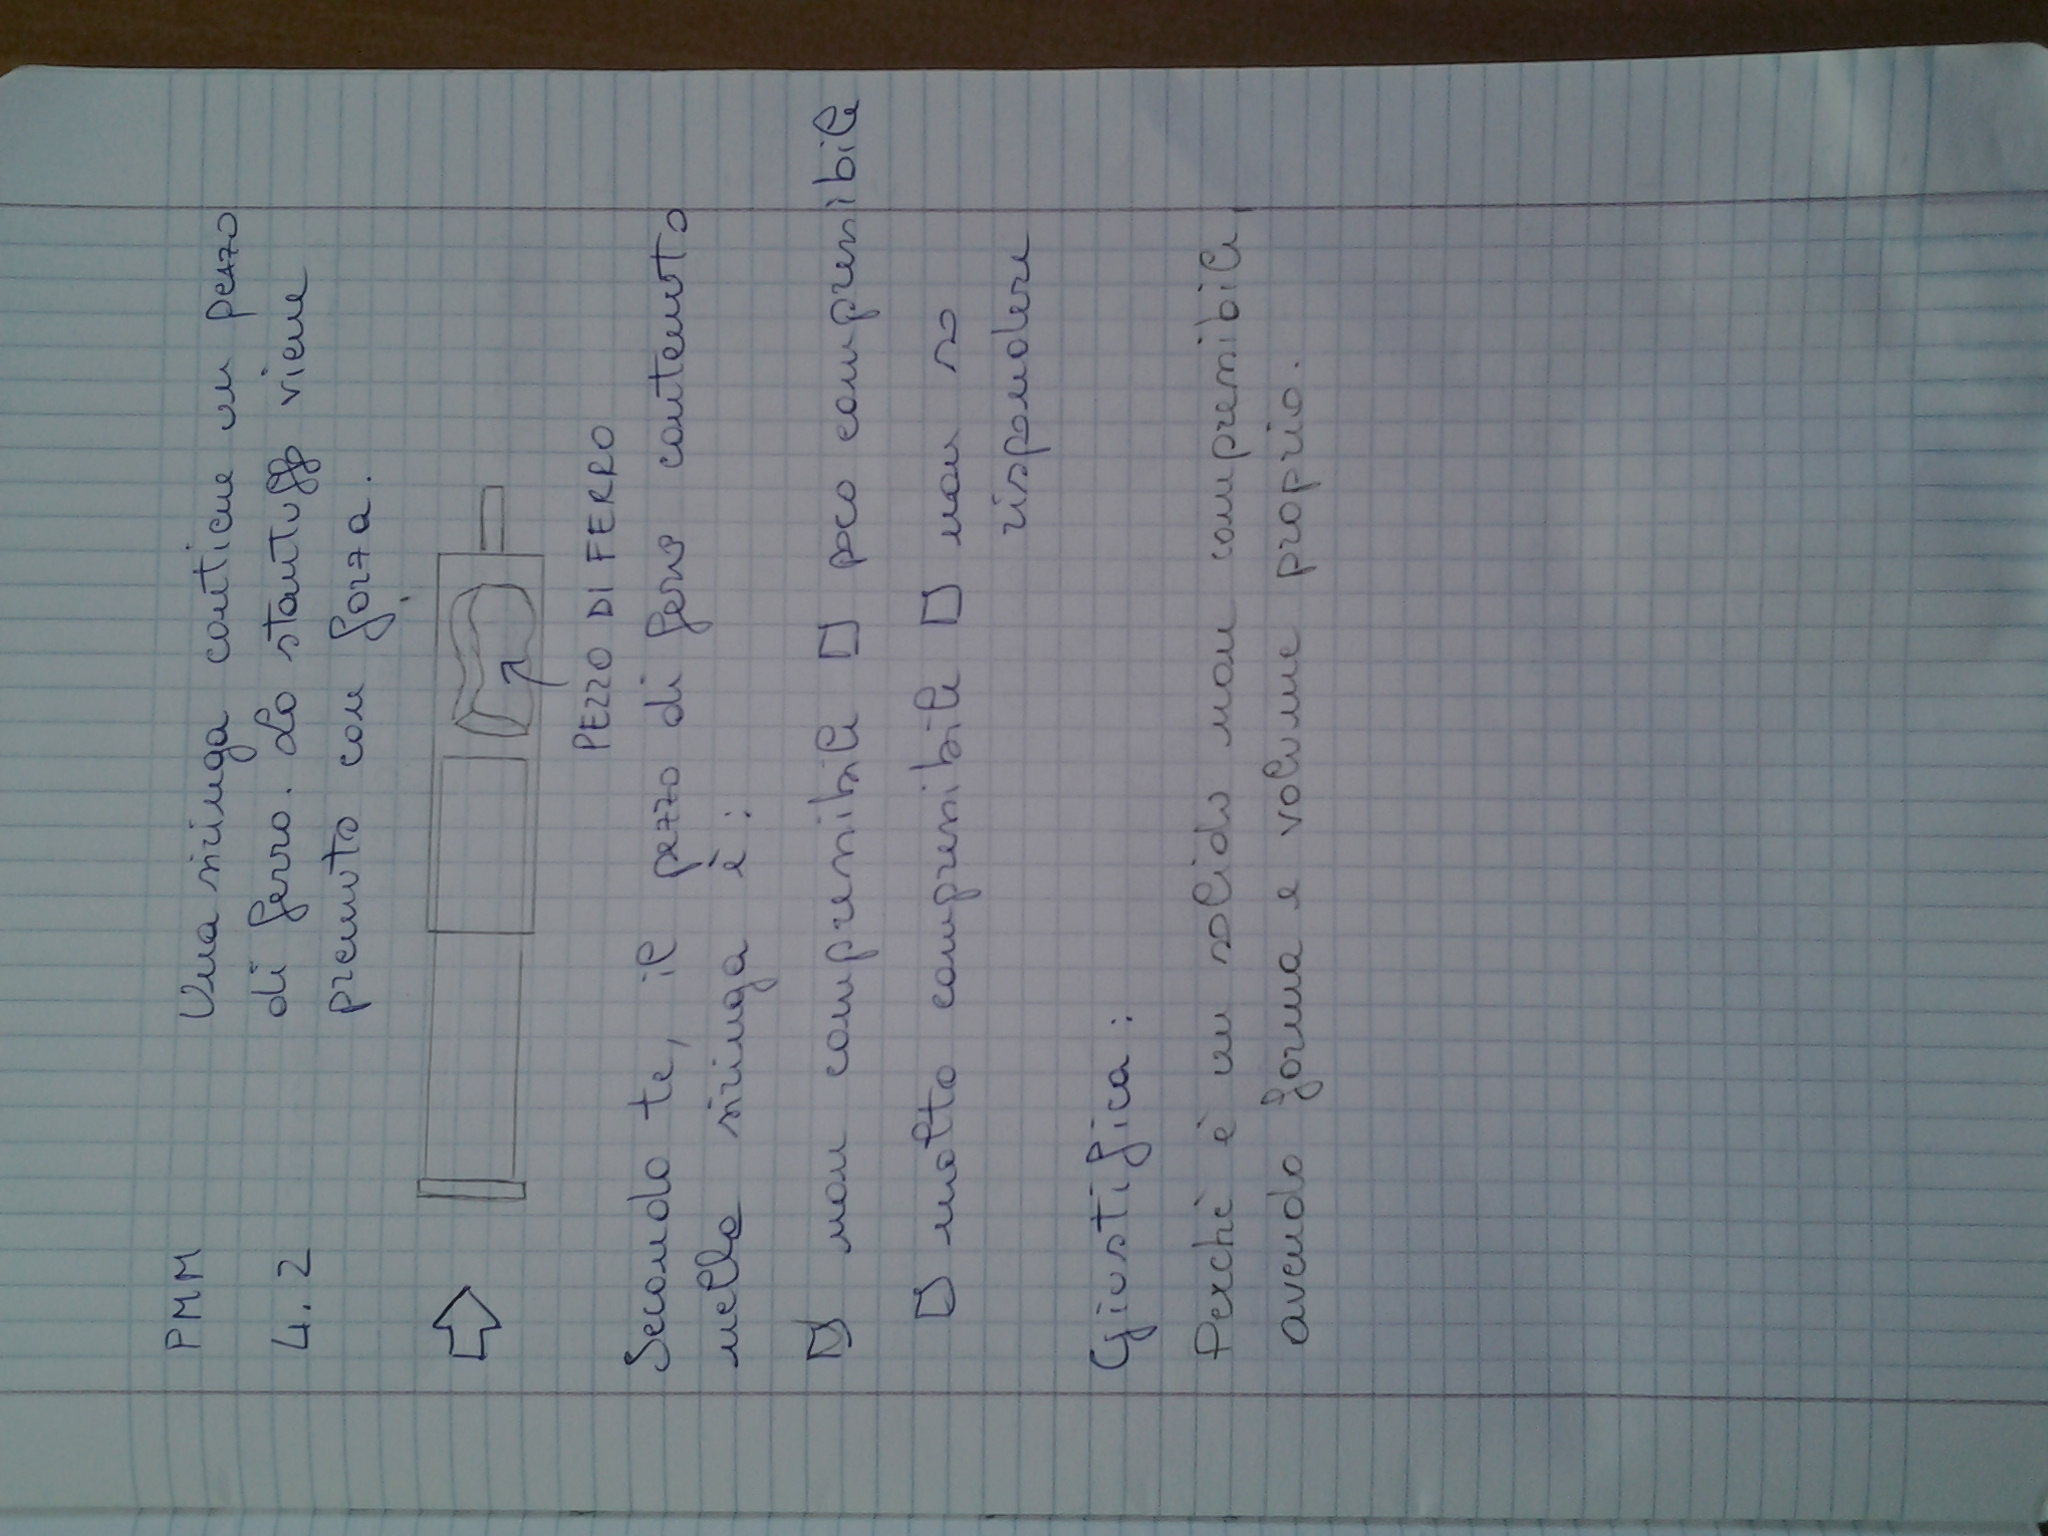 PMM
4.2
Una siringa contiene un pezzo
di ferro. Lo stantuffo viene
premuto con forza.
PEZZO DI FERRO
Secondo te, il pezzo di ferro contenuto
nella siringa è:
non comprensibile poco comprensibile
molto comprensibile non so
rispondere
Giustifica:
Perchè è un solido non comprensibile,
avendo forma e volume proprio.